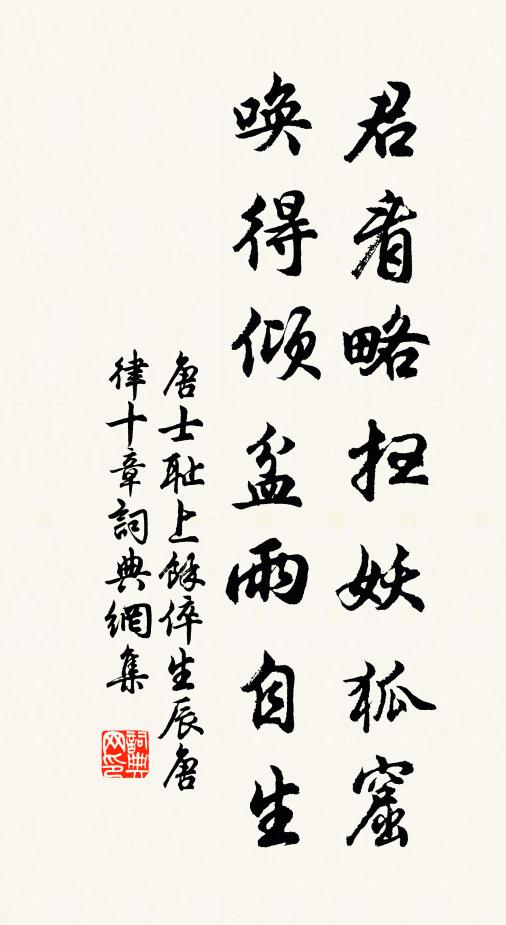 君看略扫妖狐窟
喚得傾盆雨自生
唐士耻上餘倅生辰唐
律十章詞典網集
詞典网印